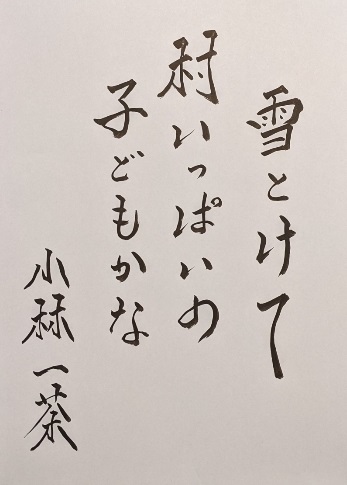 雪とけて
村いっぱいの
子どもかな
小林一茶